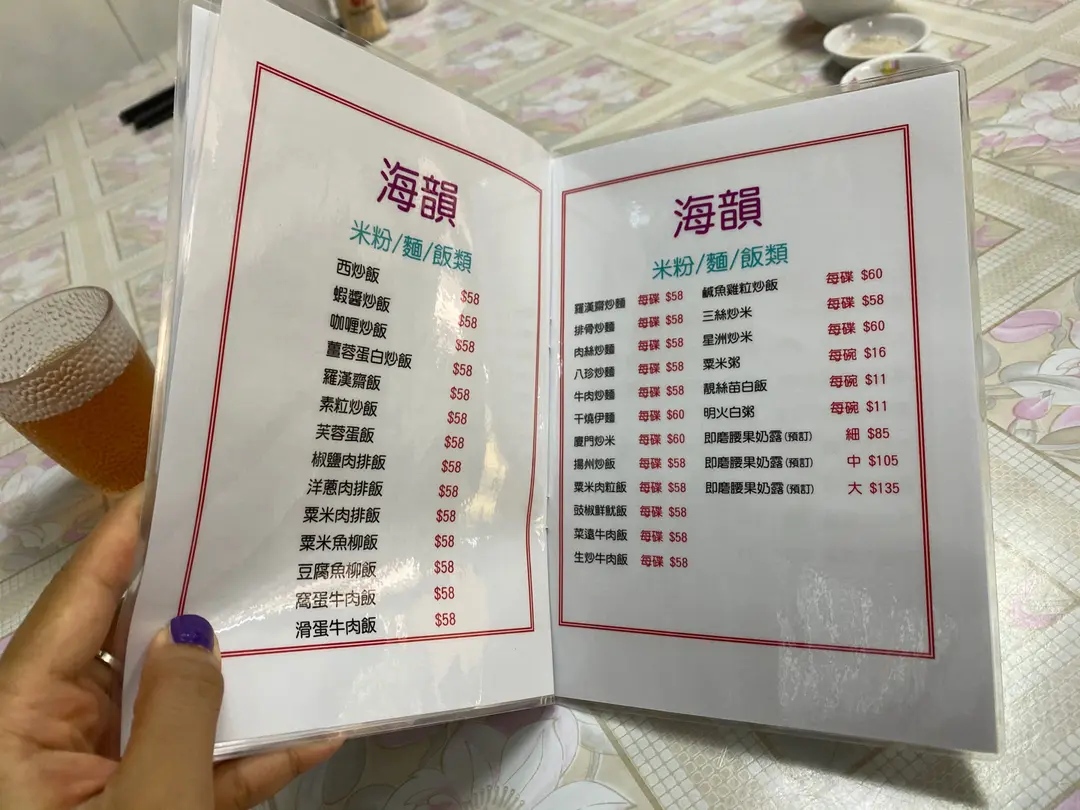 海韻
米粉/麵/飯類
西炒飯 $58
蝦醬炒飯 $58
咖喱炒飯 $58
薑蓉蛋白炒飯 $58
羅漢齋飯 $58
素粒炒飯 $58
芙蓉蛋飯 $58
椒鹽肉排飯 $58
洋蔥肉排飯 $58
粟米肉排飯 $58
粟米魚柳飯 $58
豆腐魚柳飯 $58
窩蛋牛肉飯 $58
滑蛋牛肉飯 $58
海韻
米粉/麵/飯類
羅漢齋炒麵 每碟 $58
排骨炒麵 每碟 $58
肉絲炒麵 每碟 $58
八珍炒麵 每碟 $58
牛肉炒麵 每碟 $58
干燒伊麵 每碟 $60
廈門炒米 每碟 $60
揚州炒飯 每碟 $58
粟米肉粒飯 每碟 $58
豉椒鮮魷飯 每碟 $58
菜遠牛肉飯 每碟 $58
生炒牛肉飯 每碟 $58
鹹魚雞粒炒飯 每碟 $60
三絲炒米 每碟 $58
星洲炒米 每碟 $60
粟米粥 每碗 $16
靚絲苗白飯 每碗 $11
明火白粥 每碗 $11
即磨腰果奶露(預訂) 細 $85
即磨腰果奶露(預訂) 中 $105
即磨腰果奶露(預訂) 大 $135